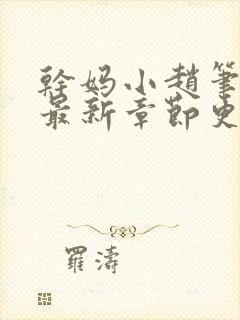 幹妈小趙筆
最新章節史
羅濤